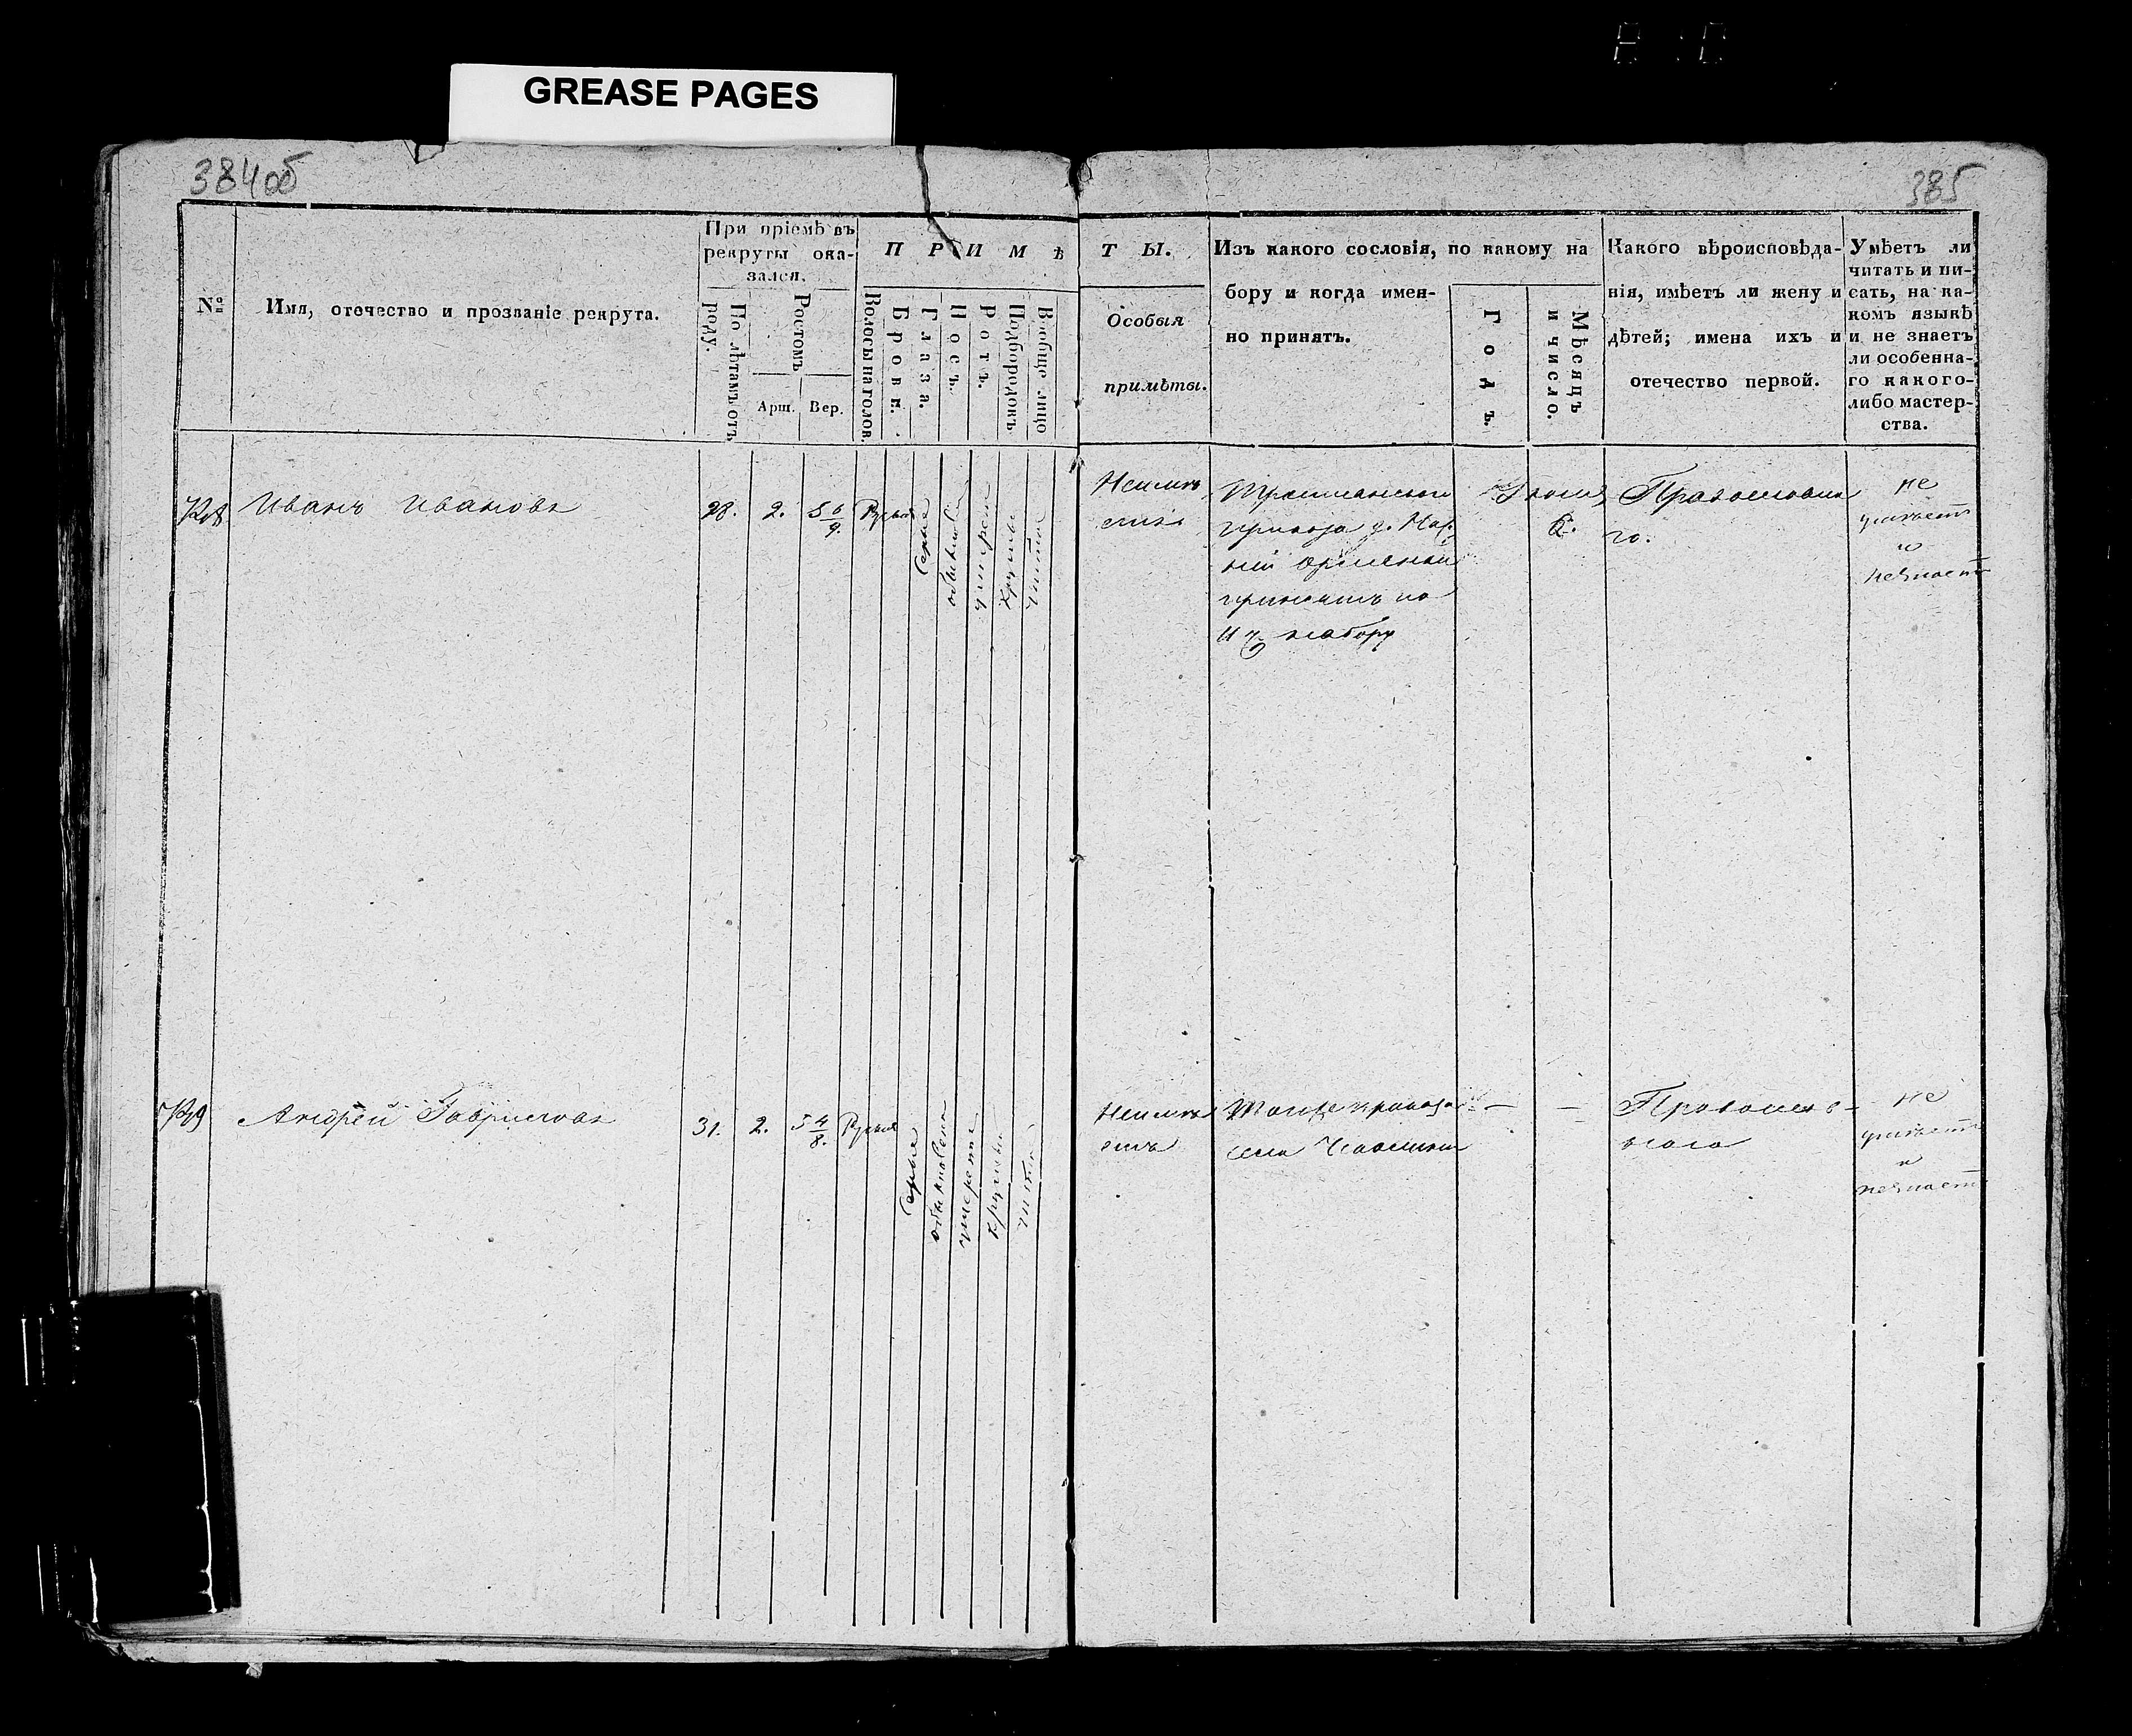 GREASE PAGES
384об
385
№
Имя, отечество и прозваніе рекрута.
При пріемѣ въ
рекруты ока-
зался.
По лѣтамъ отъ
роду.
Ростомъ
Арш.
Вер.
ПРИМѢ
Волосы на голов.
Брови.
Глаза.
Носъ.
Ротъ.
Подбородокъ
Вообще лицо
ТЫ.
Особыя
примѣты.
Изъ какого сословія, по какому на
бору и когда имен-
но принятъ.
Годъ.
Мѣсяцъ
и число.
Какого вѣроисповѣда-
нія, имѣетъ ли жену и
дѣтей; имена ихъ и
отечество первой.
Умѣетъ ли
читать и пи-
сать, на ка-
комъ языкѣ
и не знаетъ
ли особенна-
го какого-
либо мастер-
ства.
Иванъ Ивановъ
28.
2.
5 6/9.
Русые
Серые
умерен
круглый
чистое
приказа д.
принятъ по
набору
6.
Православна
го.
не
умѣетъ
и
незнаетъ
Андрей Гавриловъ
31.
2.
5 4/8.
Русые
Серые
обыкновено
умерены
круглый
чистое
Тогоже приказа
села
—
—
Православ-
наго
не
умѣетъ
и
незнаетъ